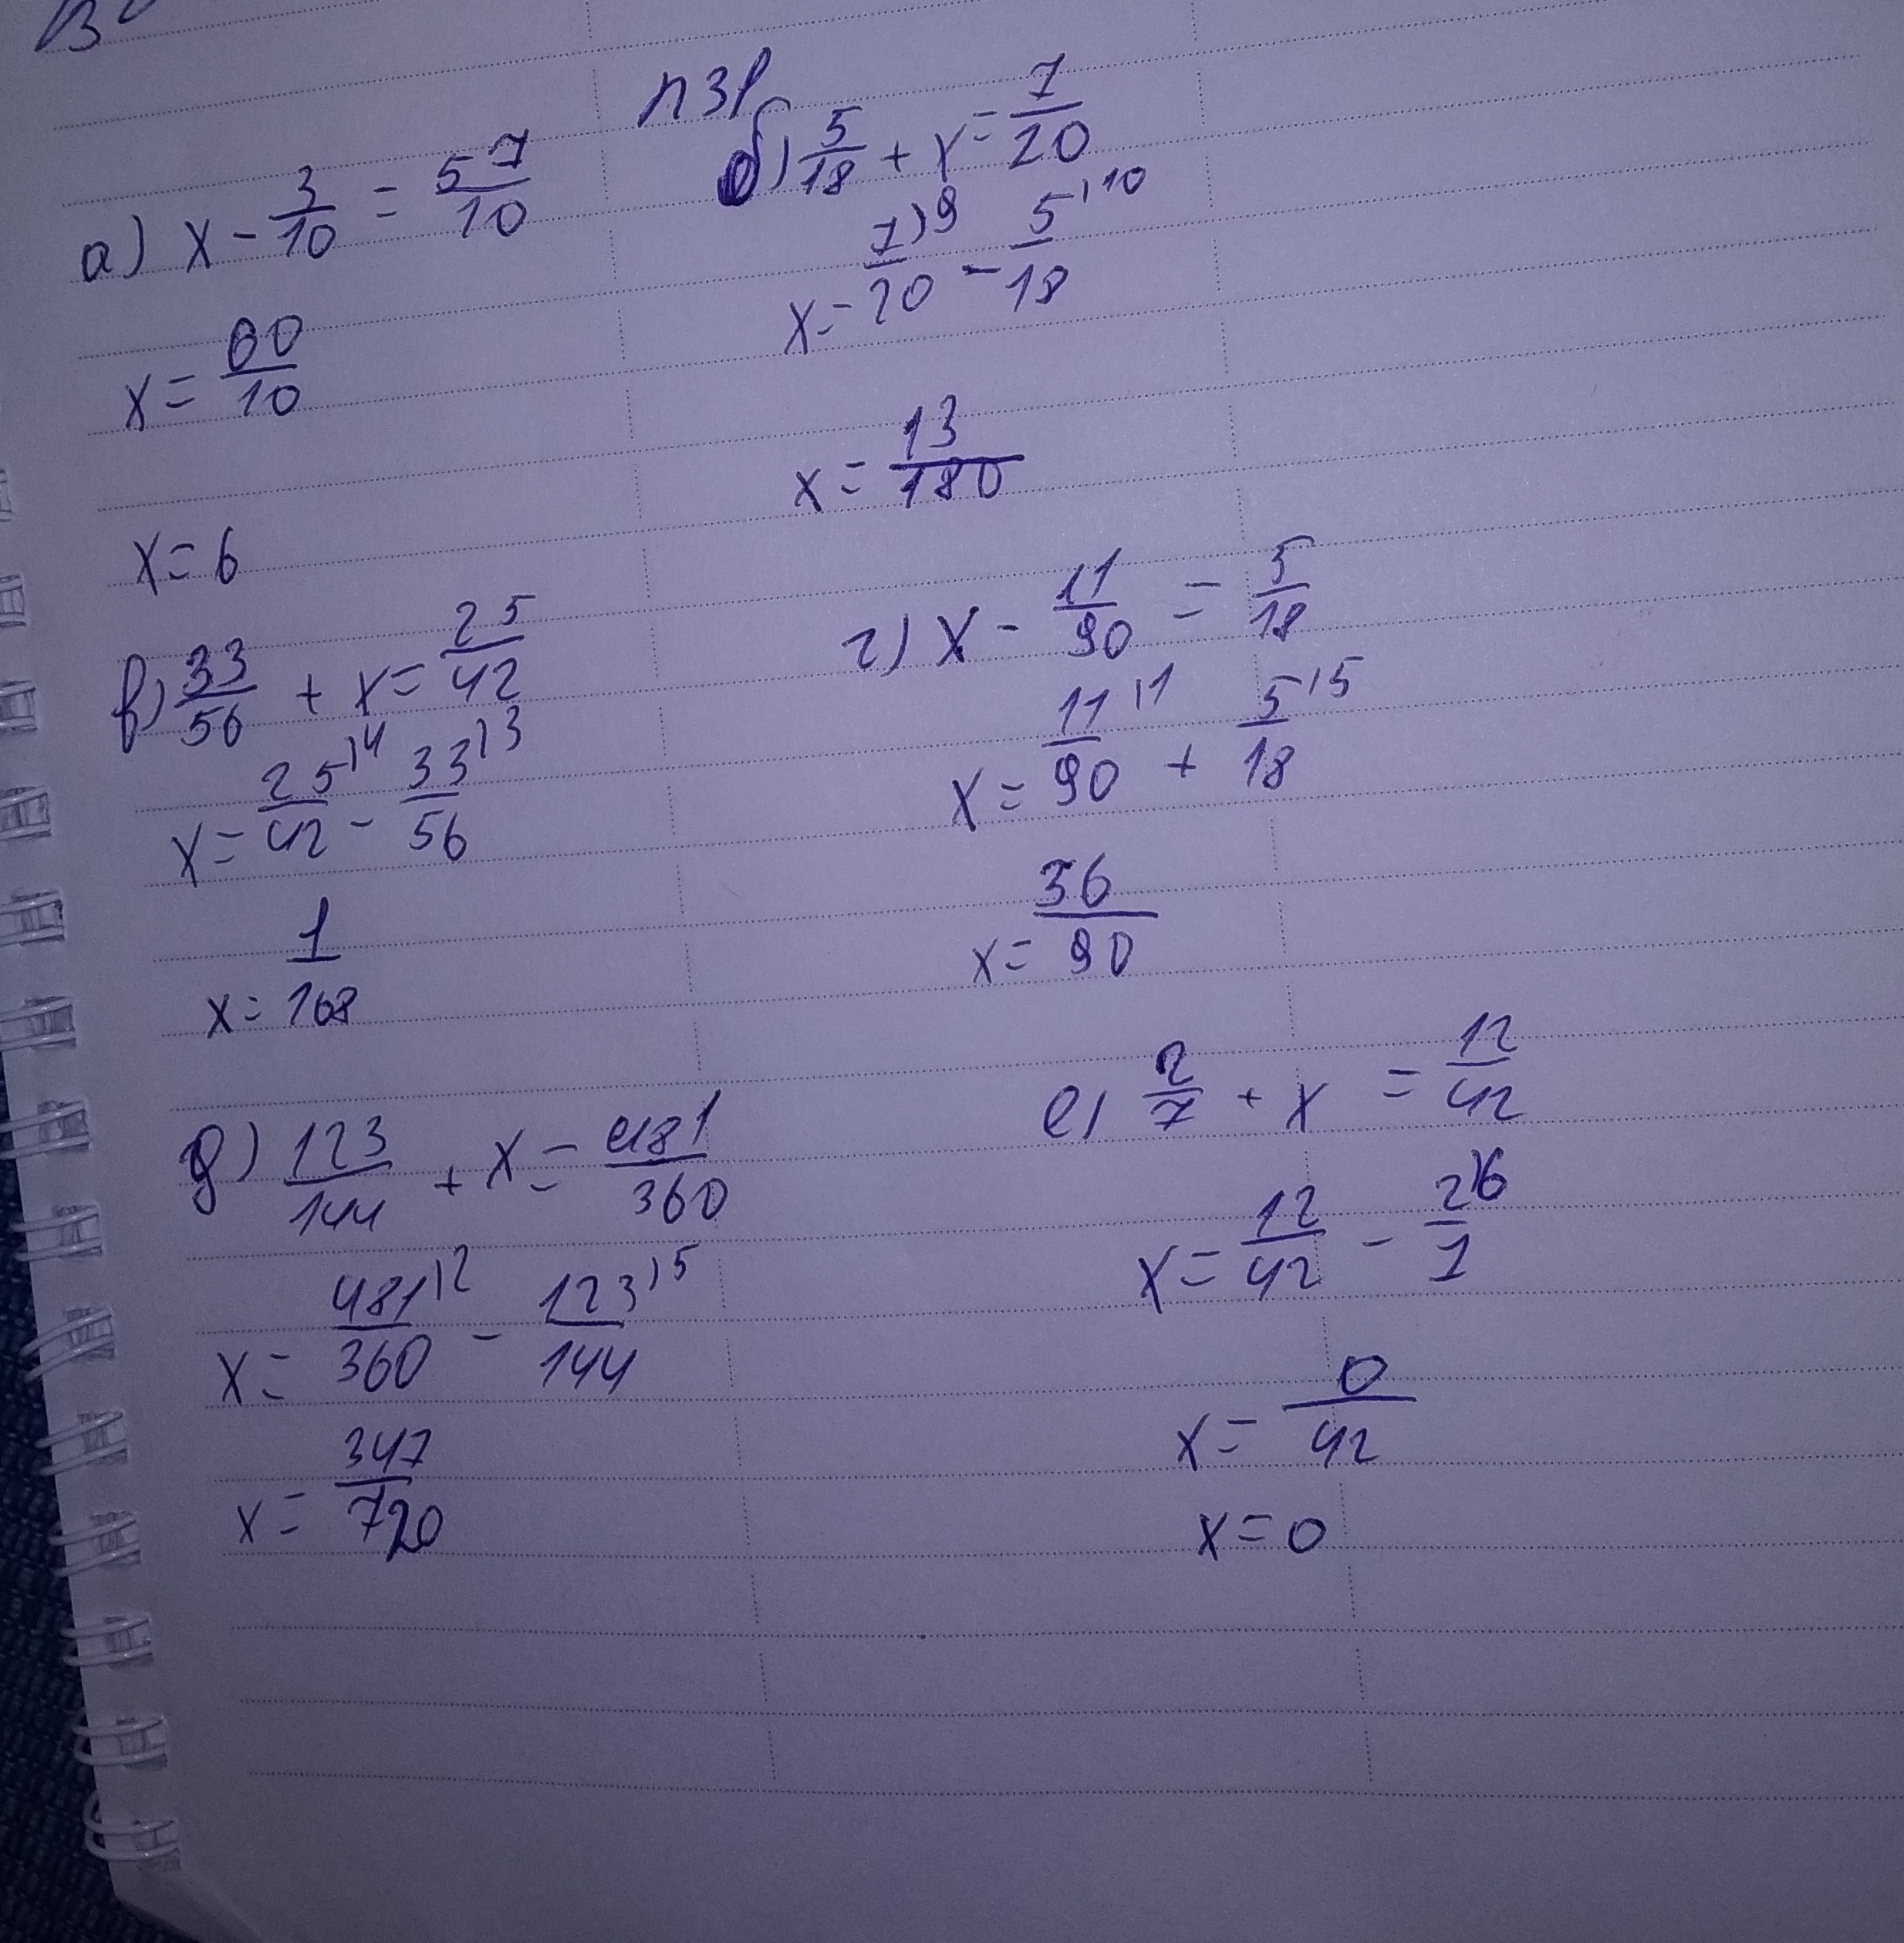 а) x - 3/10 = 57/10
x = 60/10
x = 6
б) 5/18 + x = 7/20
x = 7⁾⁹/20 - 5⁾¹⁰/18
x = 13/180
в) 33/56 + x = 25/42
x = 25⁾⁴/42 - 33⁾³/56
x = 1/168
г) x - 11/90 = 5/18
x = 11⁾¹/90 + 5⁾⁵/18
x = 36/90
д) 123/144 + x = 481/360
x = 481⁾²/360 - 123⁾⁵/144
x = 347/720
е) 2/7 + x = 12/42
x = 12/42 - 2⁾⁶/7
x = 0/42
x = 0